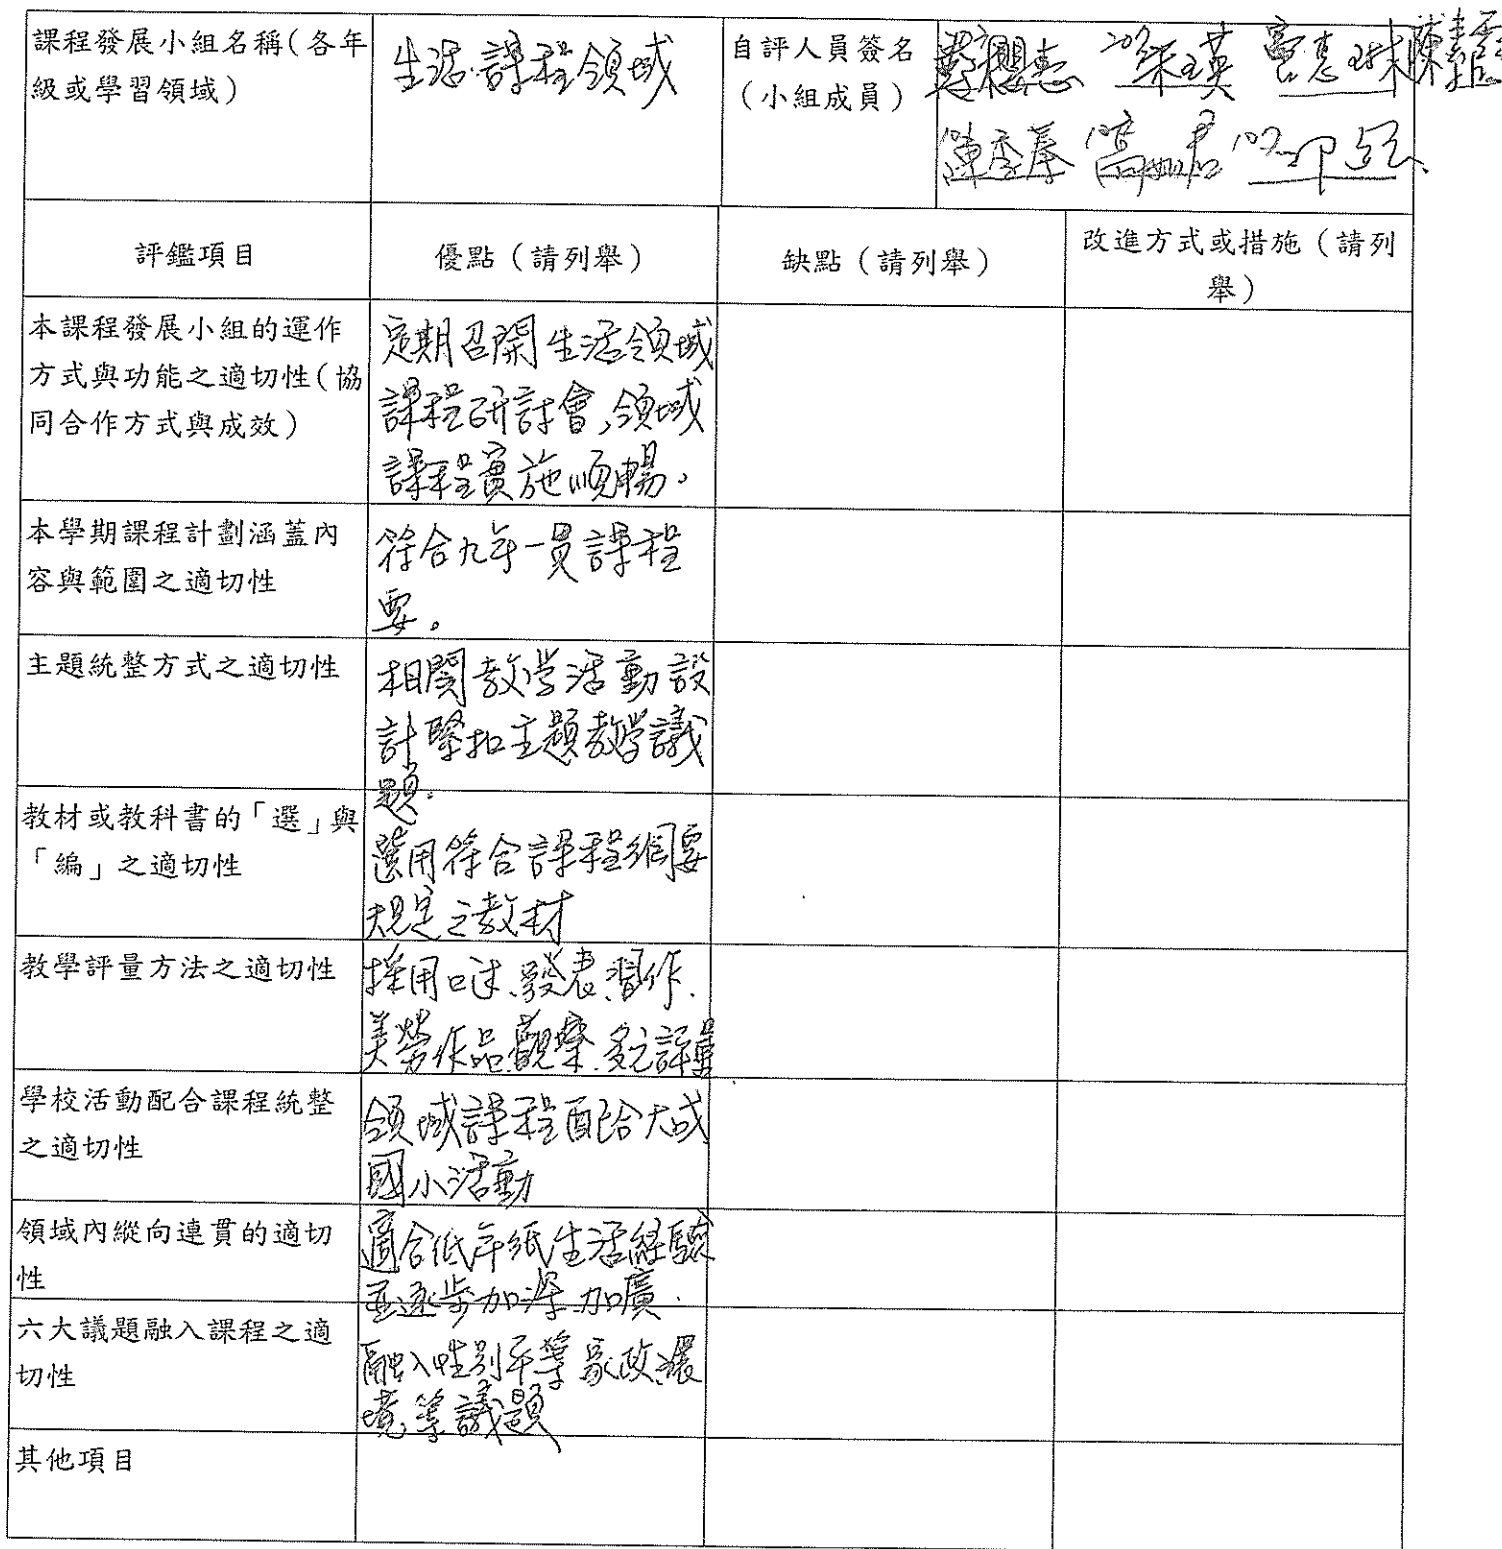 課程發展小組名稱(各年
級或學習領域)
生活課程領域
自評人員簽名
(小組成員)
評鑑項目
優點(請列舉)
缺點(請列舉)
改進方式或措施(請列
舉)
本課程發展小組的運作
方式與功能之適切性(協
同合作方式與成效)
定期召開生活領域
課程研討會,領域
課程實施順暢。
本學期課程計劃涵蓋內
容與範圍之適切性
符合九年一貫課程
要。
主題統整方式之適切性
相關教学活動設
計緊扣主題教學議
題。
教材或教科書的「選」與
「編」之適切性
選用符合課程綱要
規定之教材
教學評量方法之適切性
採用口述、發表、習作、
美勞作品、觀察、多元評量
學校活動配合課程統整
之適切性
領域課程配合大成
國小活動
領域內縱向連貫的適切
性
適合低年紙生活經驗
並逐步加深加廣.
六大議題融入課程之適
切性
融入性別平等、家政、環
境等議題
其他項目